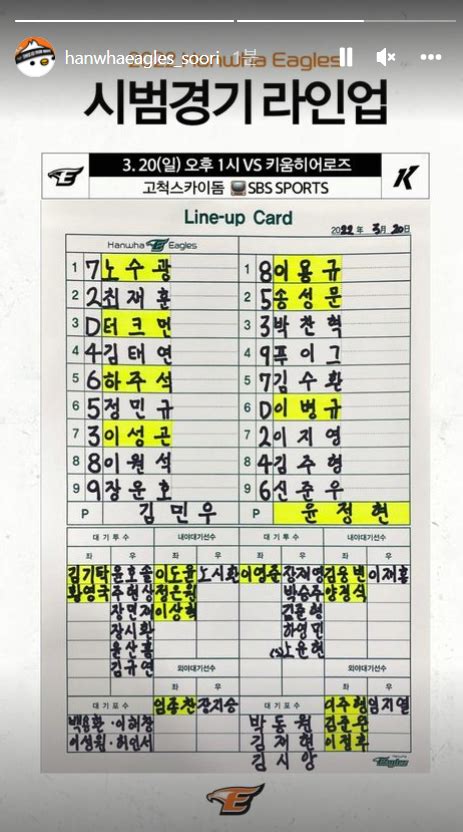 2022 Hanwha Eagles
hanwhaeagles_soori 1분
시범경기 라인업
3. 20(일) 오후 1시 VS 키움히어로즈
고척스카이돔 SBS SPORTS
Line-up Card
2022년 3월 20일
Hanwha Eagles
1 7 노수광 1 8 이용규
2 2 최재훈 2 5 송성문
3 D 터크먼 3 3 박찬혁
4 4 김태연 4 9 푸이그
5 6 하주석 5 7 김수환
6 5 정민규 6 D 이병규
7 3 이성곤 7 2 이지영
8 8 이원석 8 4 김주형
9 9 장운호 9 6 신준우
P 김민우 P 윤정현
대기투수 내야대기선수 대기투수 내야대기선수
좌 우 좌 우 좌 우 좌 우
김기탁 윤호솔 이도윤 노시환 이영준 장재영 김웅빈 이재홍
황영국 주현상 정은원 박승주 양경식
장민재 이상혁 김준형
장시환 하영민
윤산흠 노운현
김규연
외야대기선수 외야대기선수
좌 우 좌 우
대기포수 임종찬 장지승 대기포수 이주형 임지열
백용환·이해창 박동원 김준완
이성원·허인서 김재현 이정후
김시앙
Hanwha Eagles